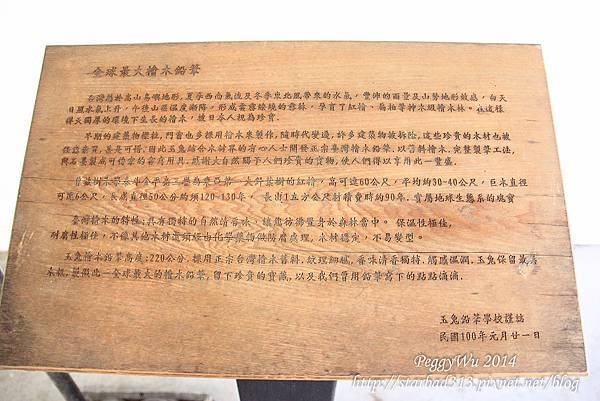 全球最大檜木鉛筆
台灣屬於高山島嶼地形,夏季西南氣流及冬季東北風帶來的水氣,豐沛的雨量及山勢地形效應,白天
日照水氣上升,午後山區溫度漸降,形成雲霧繚繞的霧林,孕育了紅檜、扁柏等神木級檜木林。在這樣
得天獨厚的環境下生長的檜木,被日本人視為珍寶。
早期的建築物樑柱,門窗也多採用檜木來製作,隨時代變遷,許多建築物被拆除,這些珍貴的木材也被
任意棄置,甚是可惜,因此玉兔結合木材界的有心人士開發正宗臺灣檜木鉛筆,以舊料檜木,完整製筆工法,
感謝大自然賜予人們珍貴的寶物,使人們得以享用此一豐盛。
的紅檜,高可達60公尺,平均約30~40公尺,巨木直徑
可達6公尺,長成直徑50公分約須120~130年,長出1立方公尺材積費時約90年,實屬地球生態系的瑰寶
臺灣檜木的特性:具有濃郁的自然清香味、讓您彷彿置身於森林當中。保溫性極佳,
耐腐性極佳,不像其他木材須經化學藥物做防腐處理,木材穩定,不易變型。
玉兔檜木鉛筆高度:220公分.採用正宗台灣檜木舊料.紋理細膩.香味清香獨特.觸感溫潤.玉兔保留
製做此一全球最大的檜木鉛筆,留下珍貴的寶藏,以及我們曾用鉛筆寫下的點點滴滴.
玉兔鉛筆學校謹誌
民國100年元月廿一日
PeggyWu 2014
http://starbad313.pixnet.net/blog